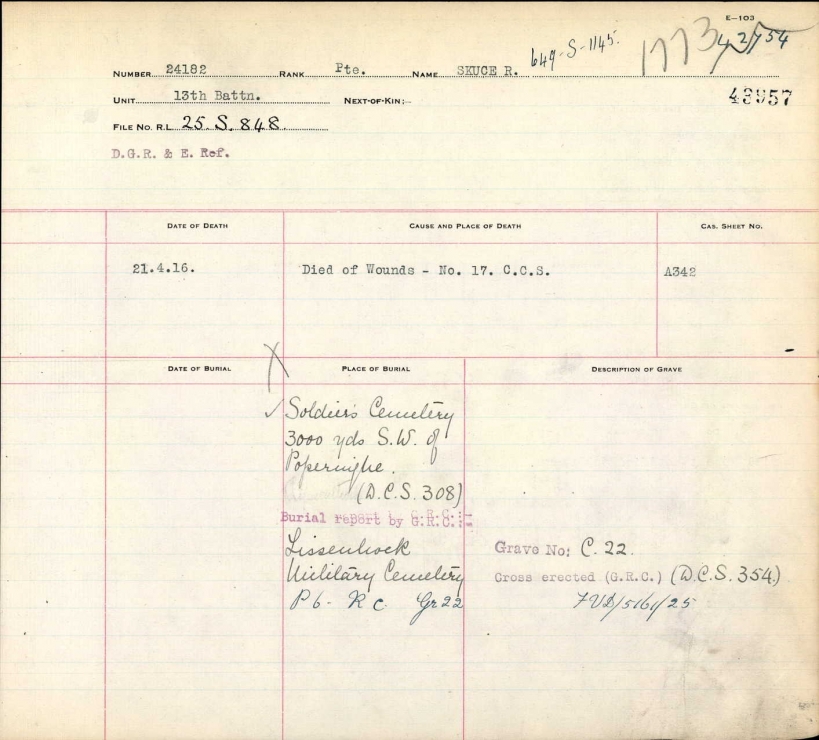 E—103
649-S-1145. 1773
NUMBER 24182 RANK Pte. NAME SKUCE R.
UNIT 13th Battn. NEXT-OF-KIN:— 48957
FILE NO. R.L. 25. S. 848.
D.G.R. & E. Ref.
DATE OF DEATH CAUSE AND PLACE OF DEATH CAS. SHEET NO.
21.4.16. Died of Wounds - No. 17. C.C.S. A342
DATE OF BURIAL PLACE OF BURIAL DESCRIPTION OF GRAVE
Soldier's Cemetery
3000 yds S.W. of
Poperinghe.
(D.C.S. 308)
Burial report by G.R.C.:-
Lissenhoek
Military Cemetery
P 6 - R C. Gr 22
Grave No: C. 22.
Cross erected (G.R.C.) (D.C.S. 354)